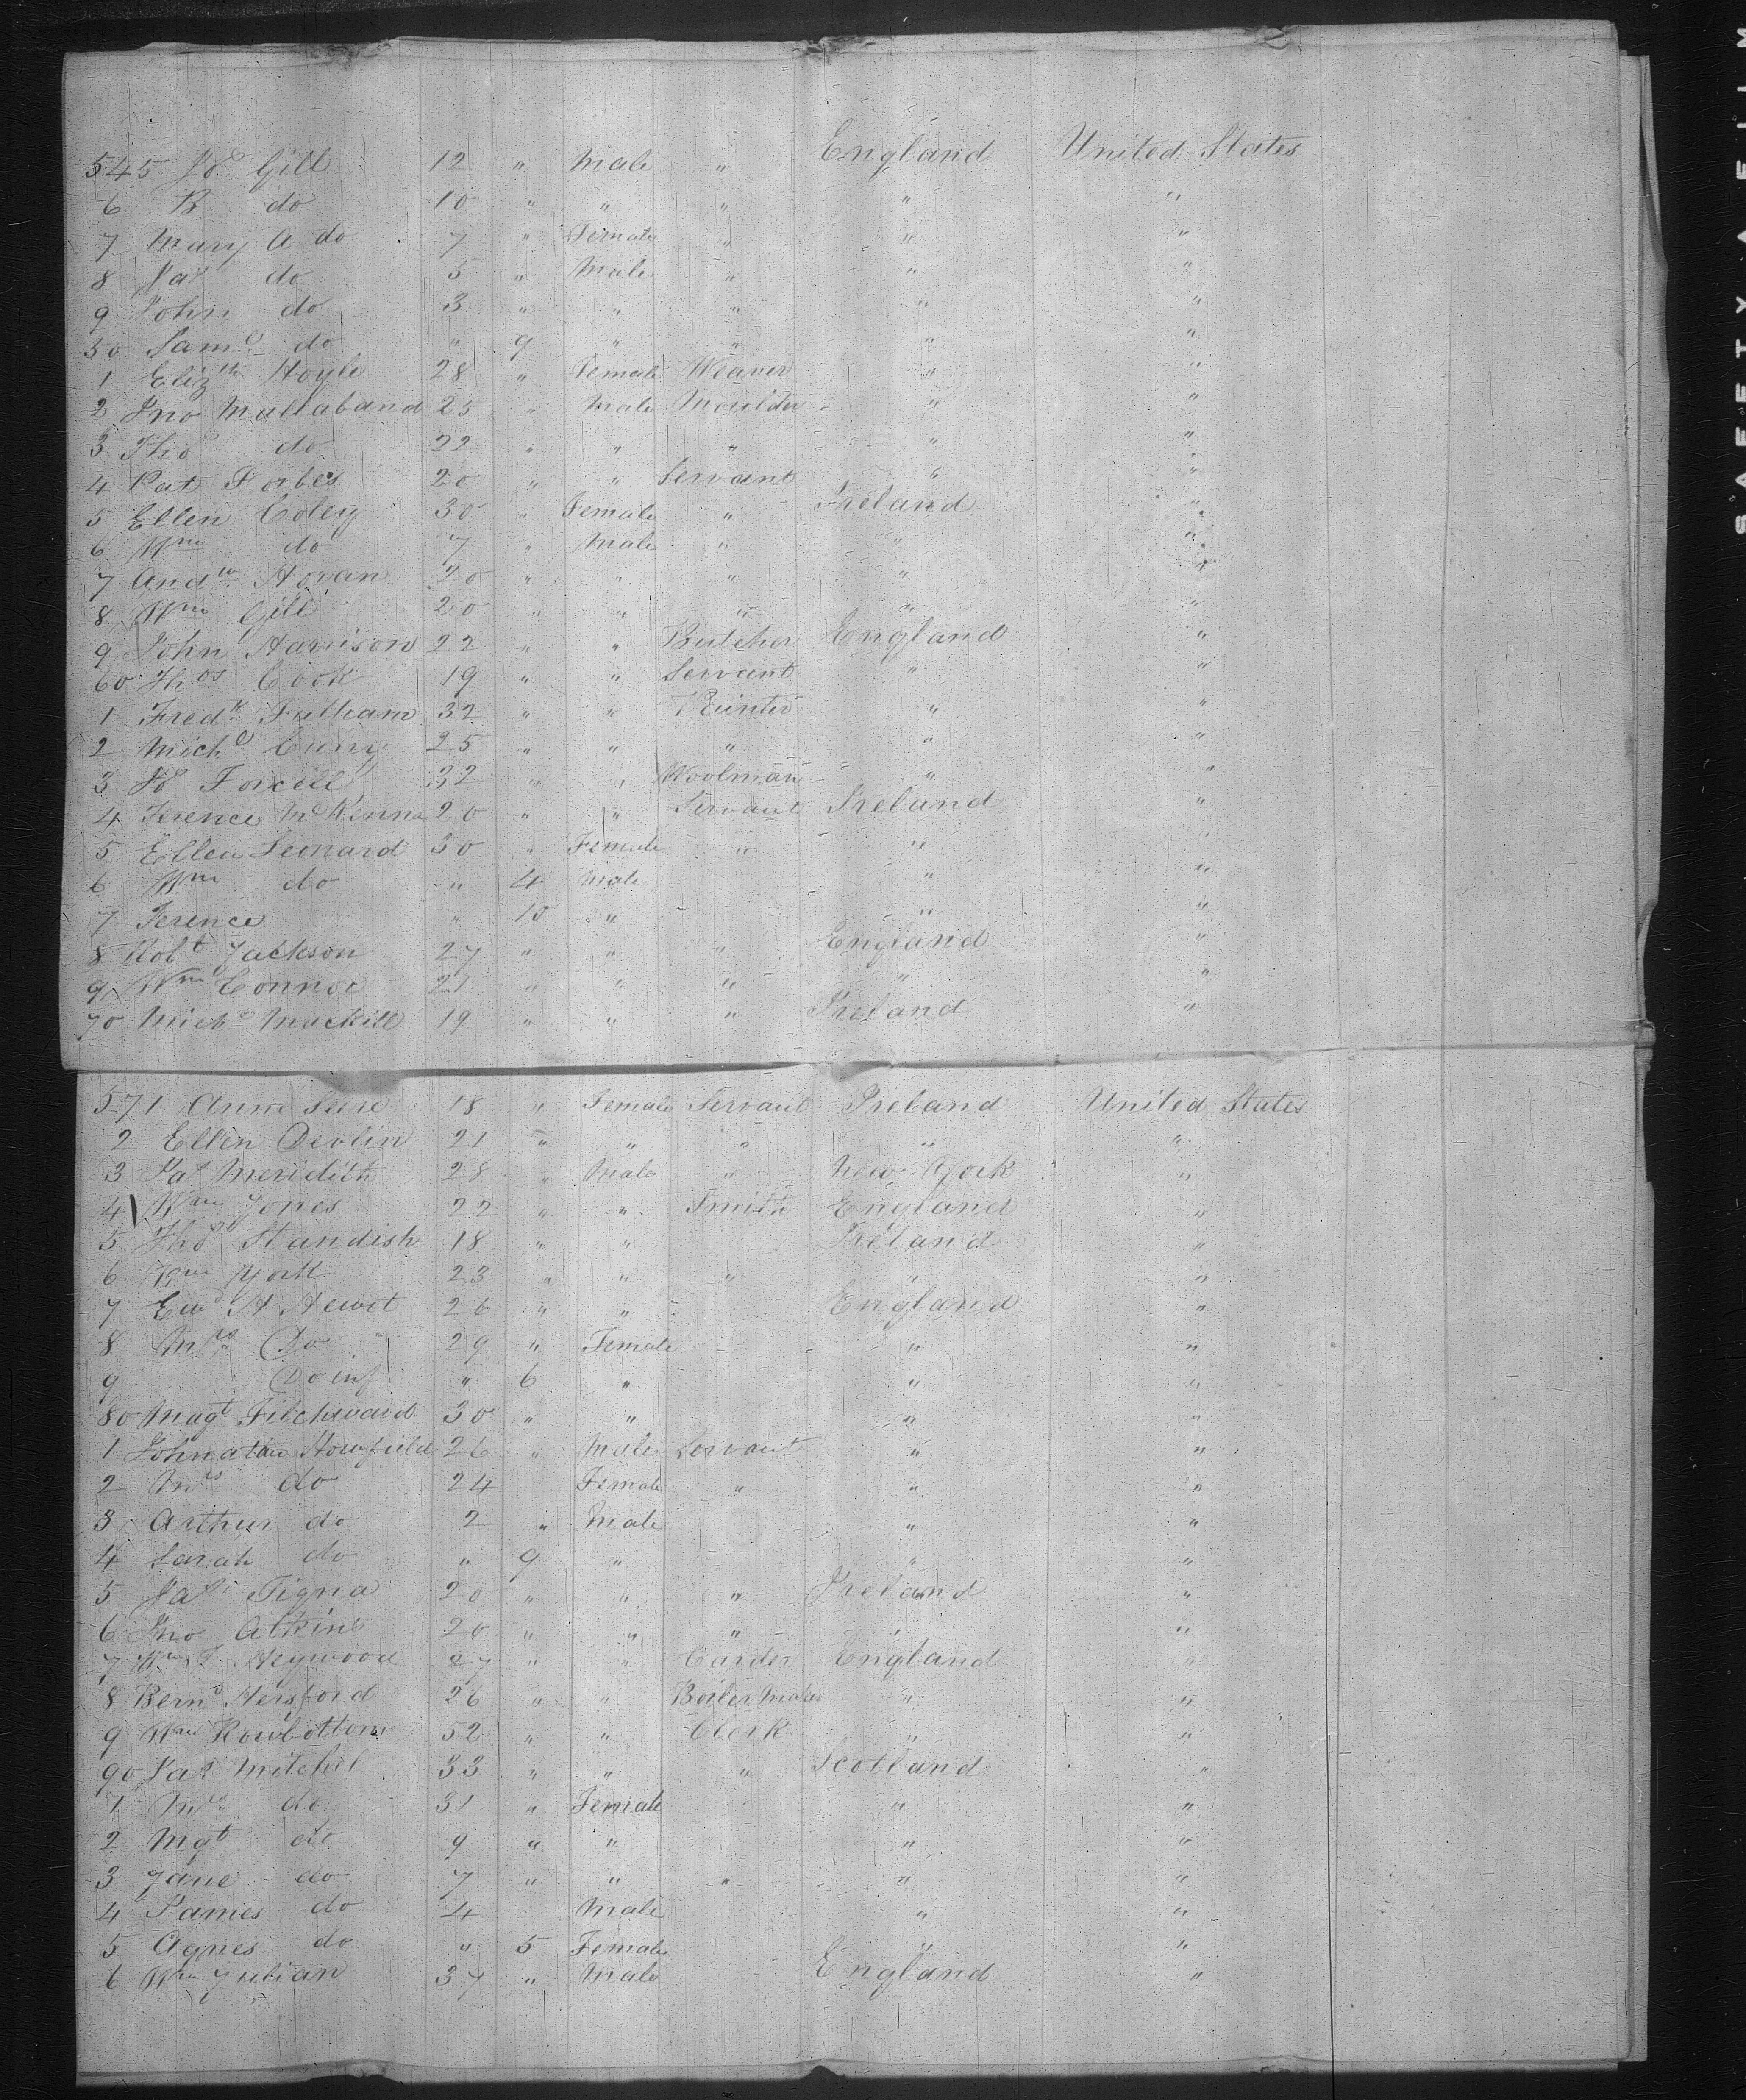 545 Js Gill 12 " Male " England United States
6 B do 10 " " " " "
7 Mary A do 7 " Female " " "
8 Jas do 5 " Male " " "
9 John do 3 " " " " "
50 Saml do " 9 " " " "
1 Elizth Hoyle 28 " Female Weaver " "
2 Jno Mallaband 25 " Male Moulder " "
3 Thos do 22 " " " " "
4 Pat Forbes 20 " " Servant " "
5 Ellen Coley 30 " Female " Ireland "
6 Wm do 7 " Male " " "
7 Andw Horan 20 " " " " "
8 Wm Gill 20 " " " " "
9 John Harrison 22 " " Butcher England "
60 Thos Cook 19 " " Servant " "
1 Fredk Fulham 32 " " "  "
2 Michl 25 " " " " "
3 Js Forcell 32 " " Woolman " "
4 Terence McKenna 20 " " Servant Ireland "
5 Ellen Leonard 30 " Female " " "
6 Wm do " 4 Male " "
7 Terence " 10 " " "
8 Robt Jackson 27 " " " England "
9 Wm Connor 21 " " " " "
70 Michl Mackill 19 " " " Ireland "
571 Anne 18 " Female Servant Ireland United States
2 Ellen Devlin 21 " " " " "
3 Jas Meridith 28 " Male " New York "
4 Wm Jones 22 " " Smith England "
5 Thos Standish 18 " " Ireland "
6 Wm York 23 " " " " "
7 Ewd H Hewit 26 " " England "
8 Mrs Do 29 " Female " "
9 Do inf " 6 " " "
80 Magt 30 " " " "
1 Johnatan 26 " Male Servant " "
2 Mrs do 24 Female " " "
3 Arthur do 2 " Male " "
4 Sarah do " 9 " " "
5 Jas Tigna 20 " " " Ireland "
6 Jno Atkins 20 " " " " "
7 Wm S Heywood 27 " " Carder England "
8 Bernd Hersford 26 " " Boiler Maker " "
9 Wm Rowbottom 52 " " Clerk " "
90 Jas Mitchel 33 " " " Scotland "
1 Mrs do 31 " Female " "
2 Mgt do 9 " " " "
3 Jane do 7 " " " " "
4 James do 4 Male " "
5 Agnes do " 5 Female " "
6 Wm Julian 37 " Male England "
SAFETY